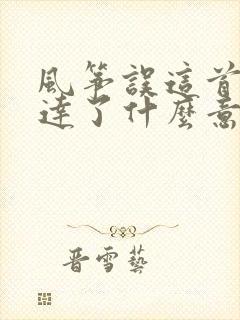 風筝誤這首
達了什麼意
晋雪藝